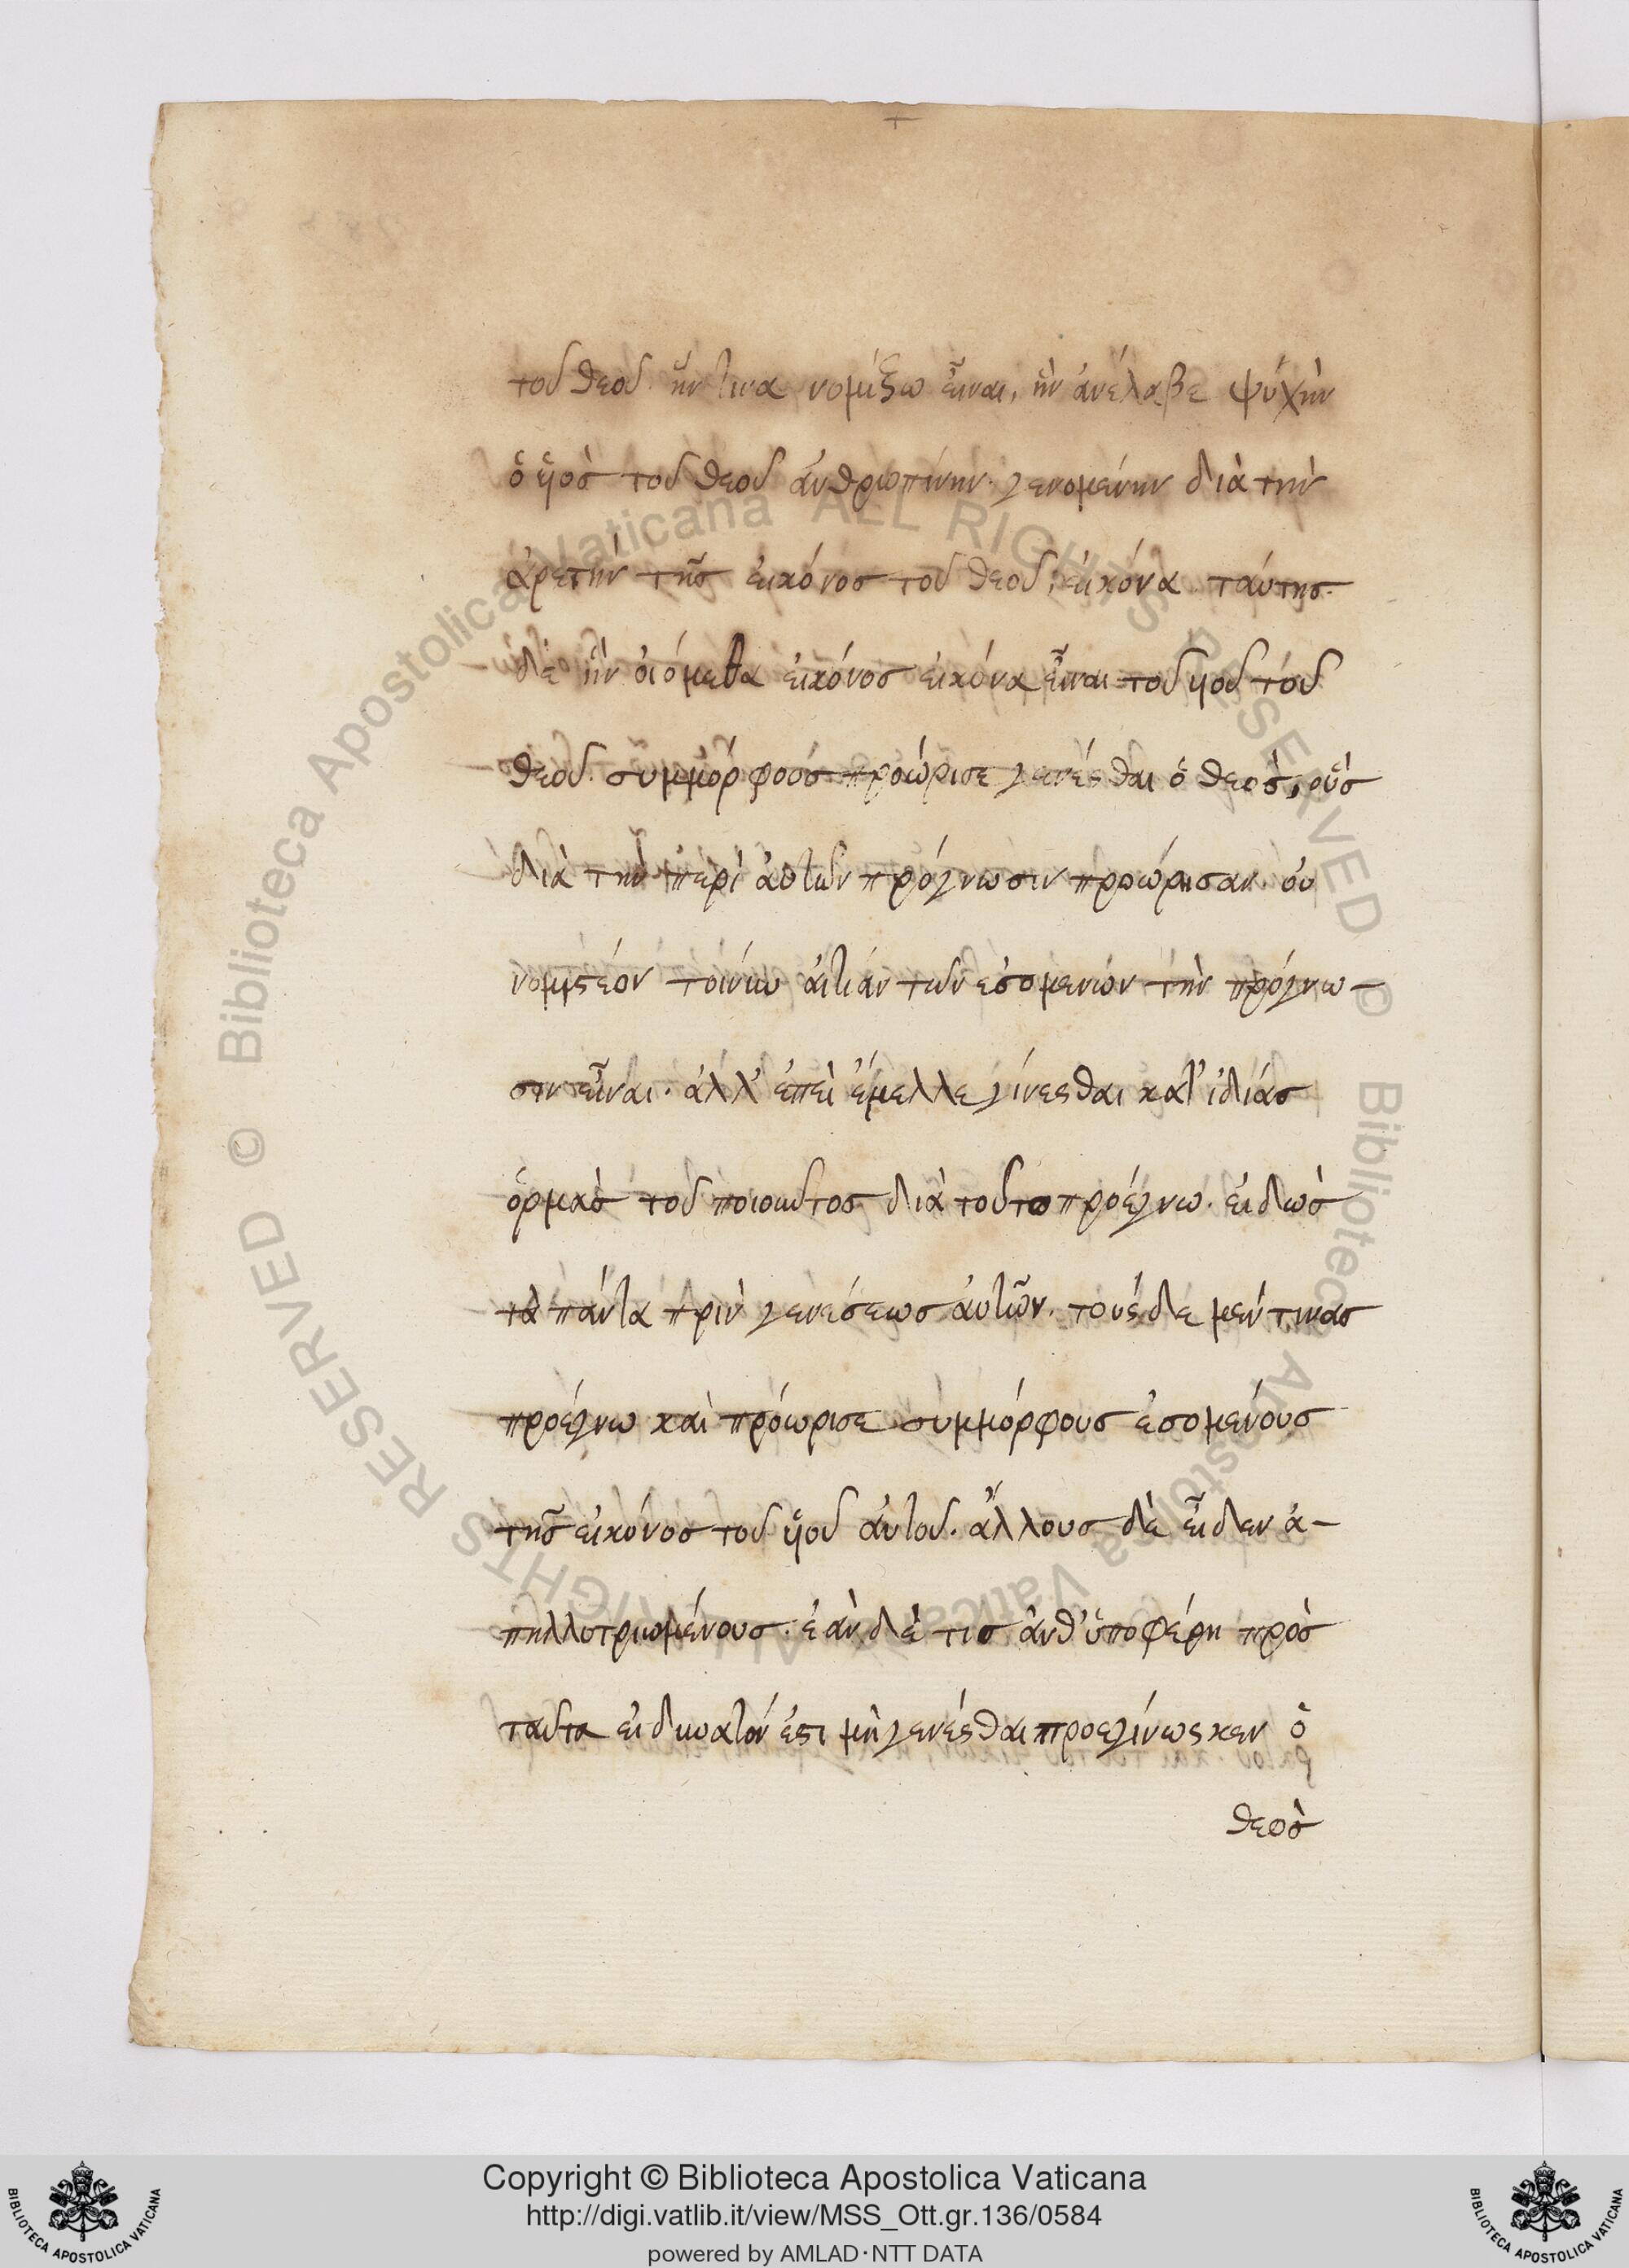 τοῦ θεοῦ. ἥντινα νομίζω εἶναι, ἣν ἀνέλαβε ψύχην
ὁ ὑιὸς τοῦ θεοῦ ἀνθρωπίνην. γενομένην διὰ τὴν
ἀρετὴν τῆς εἰκόνος τοῦ θεοῦ, εἰκόνα. ταύτης
δὲ ἣν οἰόμεθα εἰκόνος εἰκόνα εἶναι τοῦ υἱοῦ τοῦ
θεοῦ. συμμόρφους προώρισε γενέσθαι ὁ θεὸς, οὓς
διὰ τὴν περὶ ἀυτῶν πρόγνωσιν προώρησαν. οὐ
νομιστέον τοίνυν ἀιτίαν τῶν ἐσομένων τὴν πρόγνω-
σιν εἶναι. ἀλλ' ἐπεὶ ἔμελλε γίνεσθαι κατ' ἰδίας
ὁρμὰς τοῦ ποιοῦντος διὰ τοῦτο προέγνω. εἰδὼς
τὰ πάντα πρὶν γενέσεως ἀυτῶν. τούσδε μέν τινας
προέγνω καὶ πρόωρισε συμμόρφους ἐσομένους
τῆς εἰκόνος τοῦ ὑιοῦ ἀυτοῦ. ἄλλους δὲ εἶδεν ἀ-
πηλλοτριωμένους. ἐὰν δέ τις ἀνθ' ὑποφέρη πρὸς
ταῦτα εἰ δυνατόν ἐστι μὴ γενέσθαι προεγίνωσκεν ὁ
θεὸς
Copyright © Biblioteca Apostolica Vaticana
http://digi.vatlib.it/view/MSS_Ott.gr.136/0584
powered by AMLAD·NTT DATA